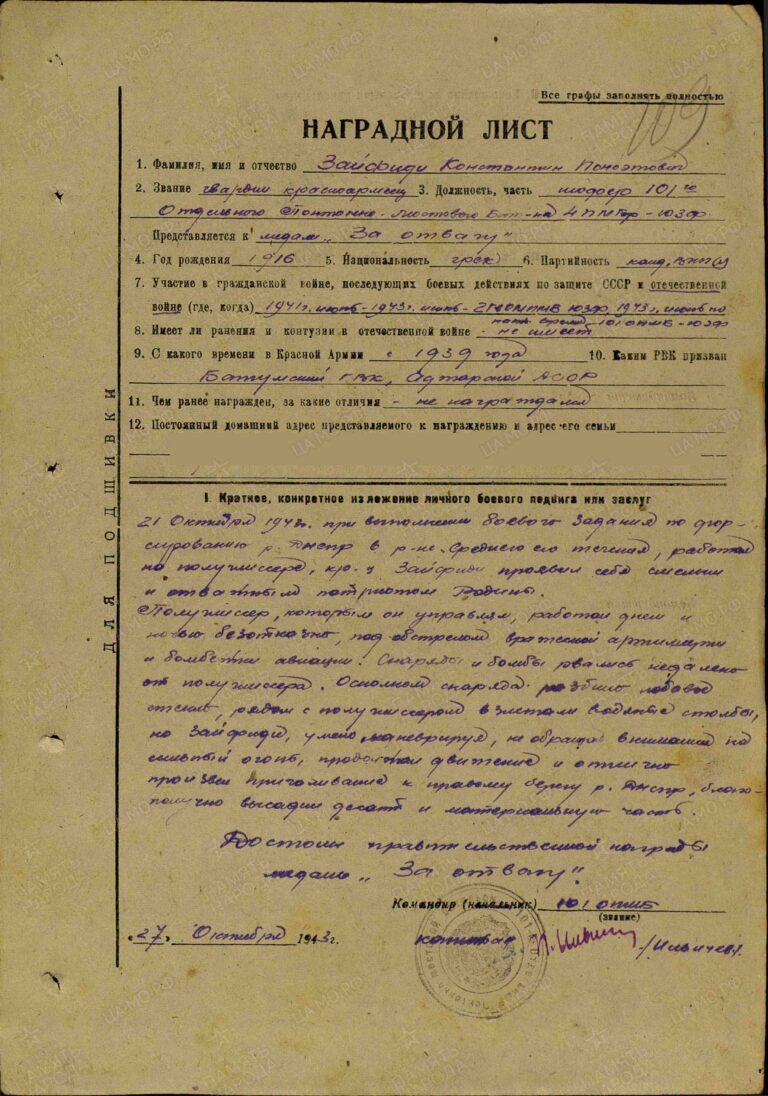 Все графы заполнять полностью
109
НАГРАДНОЙ ЛИСТ
1. Фамилия, имя и отчество Зайфиди Константин
2. Звание гвардии красноармеец 3. Должность, часть шофер 101го
Отдельного Понтонно-Мостового Бат-на 4 - ЮЗФ.
Представляется к медали „За отвагу"
4. Год рождения 1916 5. Национальность грек 6. Партийность канд. ВКП(б)
7. Участие в гражданской войне, последующих боевых действиях по защите СССР и отечественной
войне (где, когда) 1941г. июнь - 1943г. июнь - ЮЗФ, 1943г. июнь по
101 ОПМБ - ЮЗФ
8. Имеет ли ранения и контузии в отечественной войне - не имеет
9. С какого времени в Красной Армии с 1939 года 10. Каким РВК призван
Батумский ГВК, Аджарской АССР
11. Чем ранее награжден, за какие отличия - не награждался
12. Постоянный домашний адрес представляемого к награждению и адрес его семьи
ДЛЯ ПОДШИВКИ
I. Краткое, конкретное изложение личного боевого подвига или заслуг
21 Октября 1943г. при выполнении боевого задания по фор-
сированию р. Днепр в р-не среднего его течения, работая
на полуглиссере, кр-ц Зайфиди проявил себя смелым
и отважным патриотом Родины.
Полуглиссер, которым он управлял, работал днем и
ночью безотказно, под обстрелом вражеской артиллерии
и бомбежки авиации. Снаряды и бомбы рвались недалеко
от полуглиссера. Осколком снаряда разбило лобовое
стекло, рядом с полуглиссером взлетали водяные столбы,
но Зайфиди, умело маневрируя, не обращая внимания на
сильный огонь, продолжал движение и отлично
произвел причаливание к правому берегу р. Днепр, благо-
получно высадил десант и материальную часть.
Достоин правительственной награды
медали „За отвагу"
Командир (начальник) 101 опмб
(звание)
„27" Октября 1943г. капитан /Ильичев/.